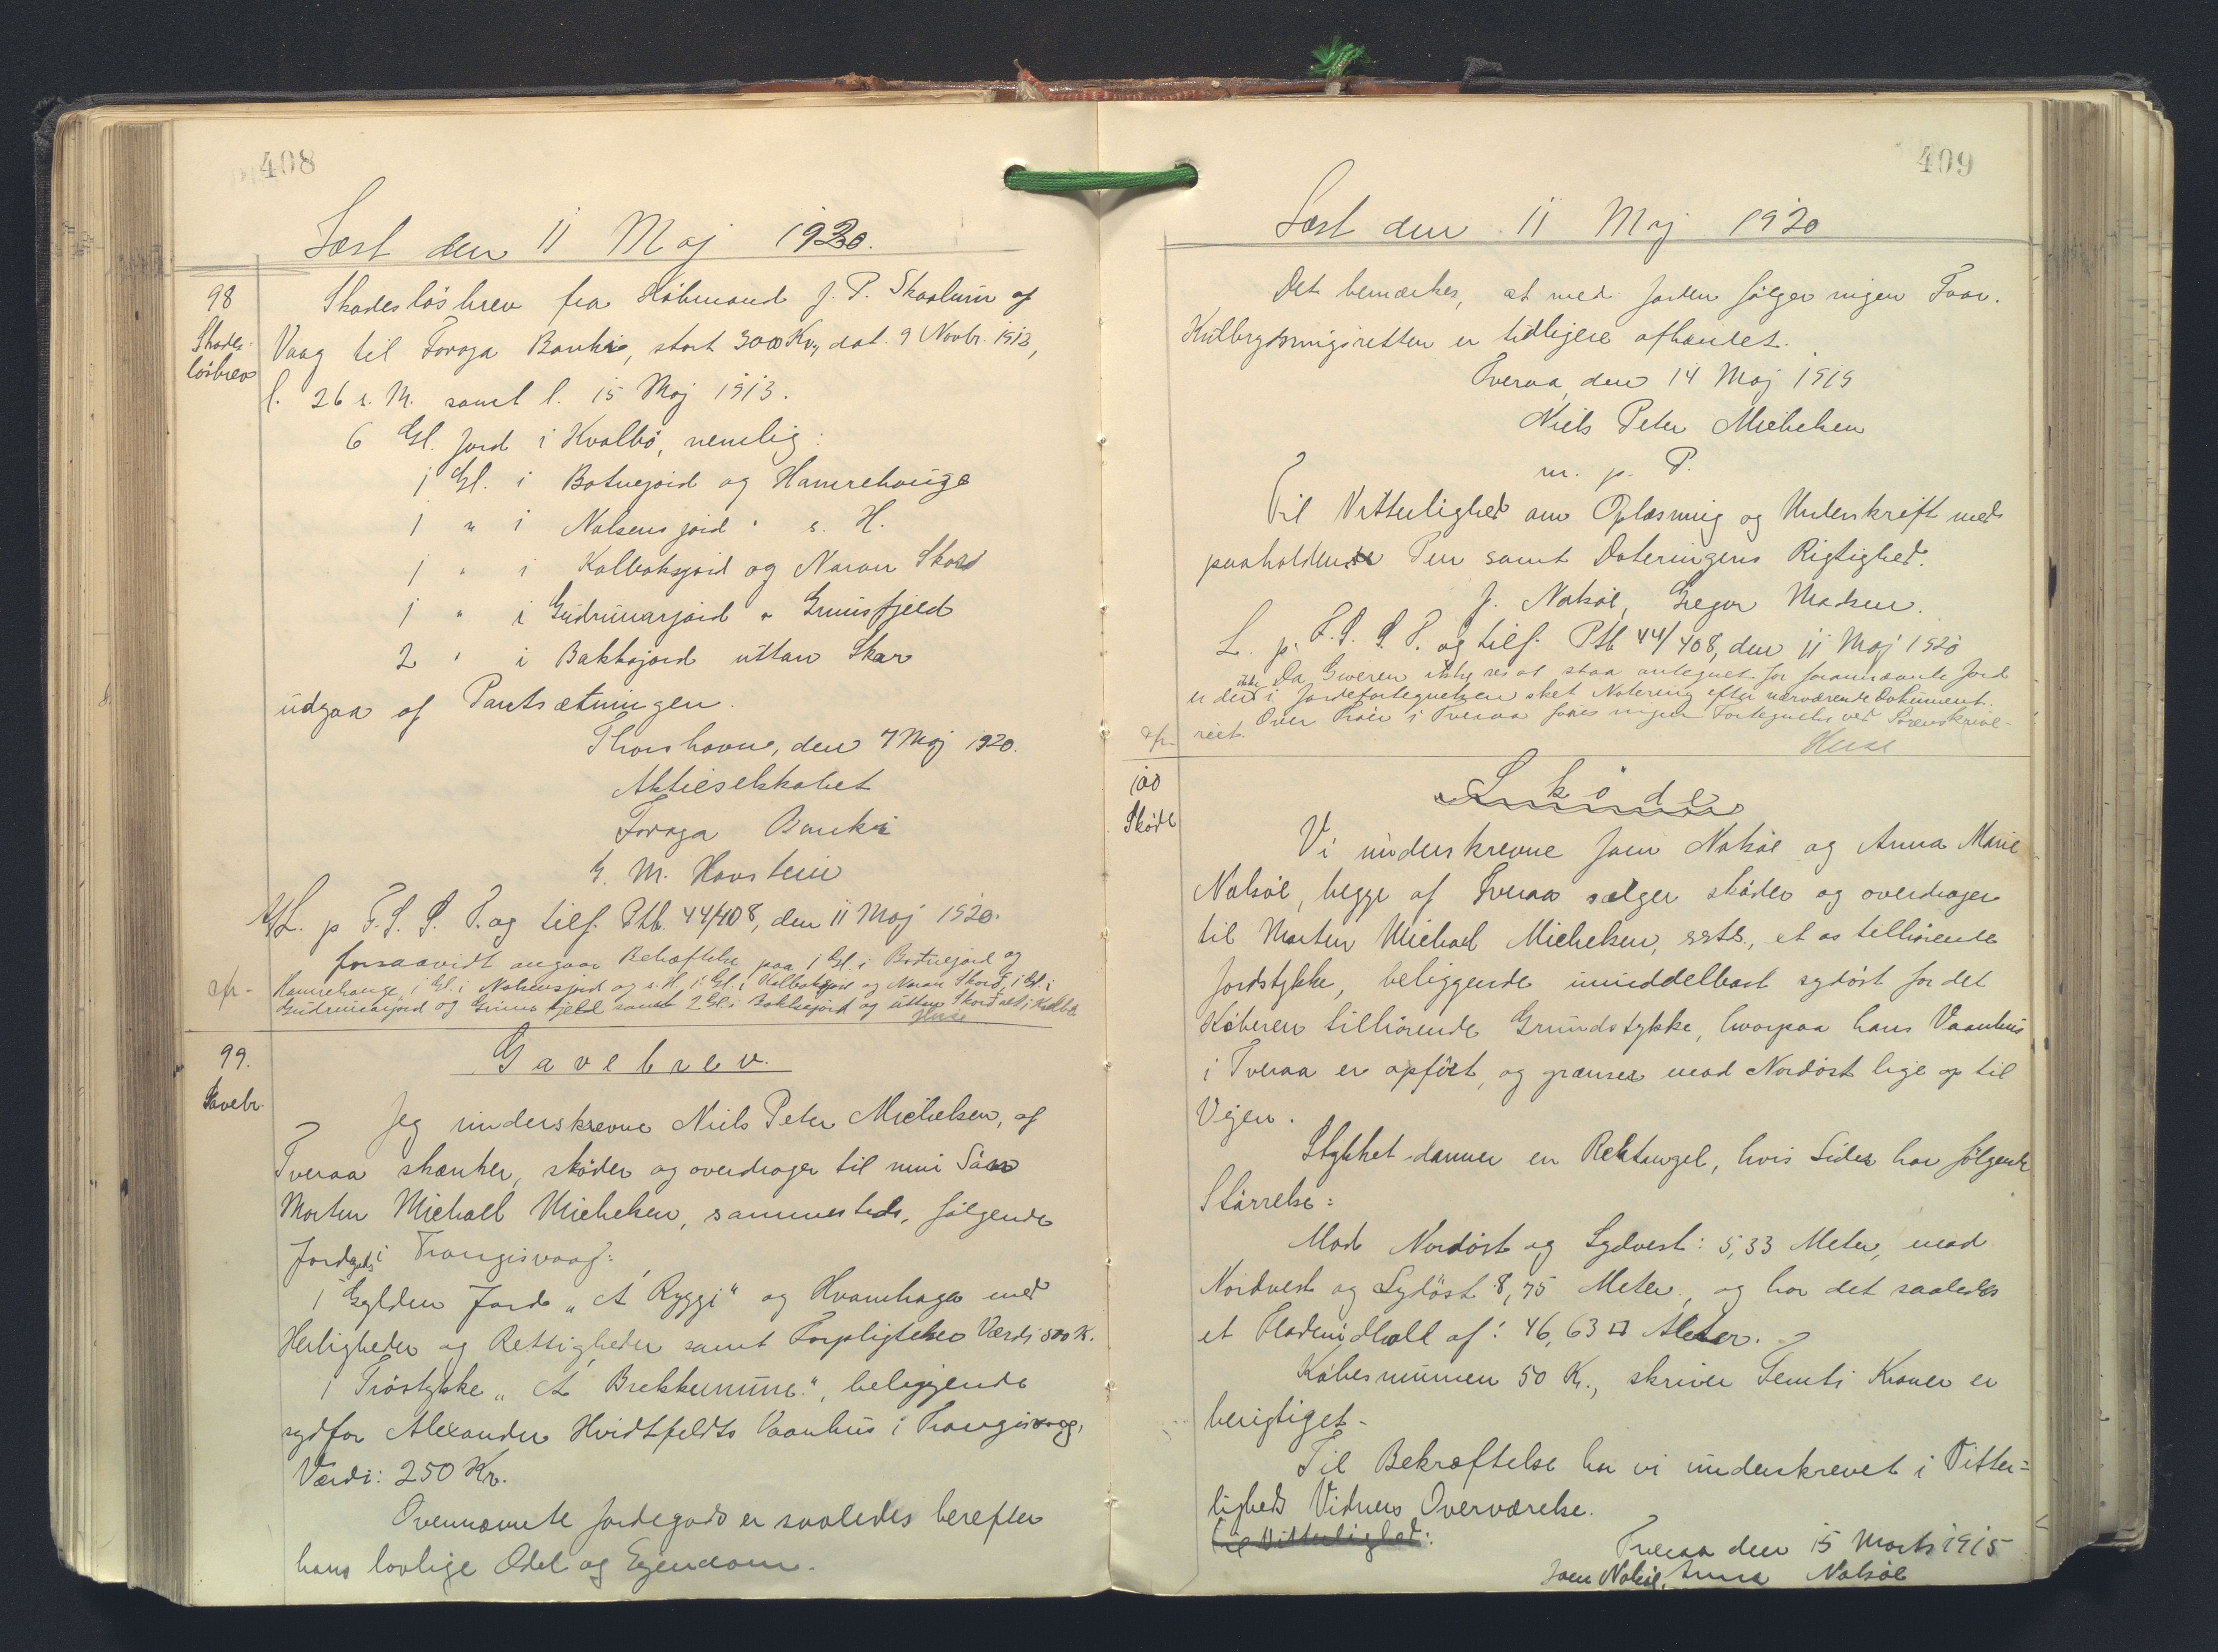 408
Læst den 11 Maj 1920.
98
Skades-
løsbrev
Skadesløsbrev fra Købmand J. P. Skaalum af
Vaag til Føroya Banki, stort 3000 Kr., dat. 9 Novbr. 1912,
l. 26 s. M. samt l. 15 Maj 1913.
6 Gl. Jord i Kvalbø, nemlig:
1 Gl. i Botnejord og Hamrehauge
1 " i Nolsens jord " s. H.
1 " i Kalbaksjord og Naran Skord
1 " i Gudrunarjord " Grimsfjeld
2 " i Bakkajord uttan Skar
udgaa af Pantsætningen.
Thorshavn, den 7 Maj 1920.
Aktieselskabet
Føroya Banki
G. M. Havstein
L. p F. S. S. P. og tilf. Ptb. 44/408, den 11 Maj 1920.
forsaavidt angaar Behæftelse paa 1 Gl. i Botnejord og
Hamrehauge, 1 Gl. i Nolsensjord og s. H. 1 Gl. i Kalbaksjord og Naran Skord, 1 Gl. i
Gudrunarjord og Grimsfjeld samt 2 Gl. i Bakkejord og uttan Skord alt i Kvalbø
99.
Gavebr.
Gavebrev.
Jeg underskrevne Niels Peter Michelsen, af
Tveraa skænker, skøder og overdrager til min Søn
Morten Michael Michelsen, sammesteds, følgende
Jordgods i Trangisvaag:
1 Gylden Jord "Á Ryggi" og Hvamhaga med
Herligheder og Rettigheder samt Forpligtelser Værdi 500 K.
1 Trøstykke "Á Brekkunum", beliggende
sydfor Alexander Hvidtfeldts Vaanhus i Trangisvaag,
Værdi: 250 Kr.
Ovennævnte Jordegods er saaledes herefter
hans lovlige Odel og Ejendom.
409
Læst den 11 Maj 1920
Det bemærkes, at med Jorden følger ingen Faar.
Kulbrydningsretten er tidligere afhændet.
Tveraa, den 14 Maj 1919
Niels Peter Michelsen
m. p. P.
Til Vitterlighed om Oplæsning og Underskrift med
paaholdende Pen samt Dateringens Rigtighed.
J. Nolsøe, Gregor Madsen.
L. p. F. S. S. P. og tilf. Ptb 44/408, den 11 Maj 1920
Da Giveren ikke ses at staa antegnet for forannævnte Jord
er der ikke i Jordefortegnelsen sket Notering efter nærværende Dokument.
Over Trøer i Tveraa føres ingen Fortegnelse ved Sorenskrive-
riet.
100
Skøde
Skøde
Vi underskrevne Joen Nolsøe og Anna Marie
Nolsøe, begge af Tveraa sælger skøder og overdrager
til Morten Michael Michelsen, ssts., et os tilhørende
Jordstykke, beliggende umiddelbart sydøst for det
Køberen tilhørende Grundstykke, hvorpaa hans Vaanhus
i Tveraa er opført, og grænser mod Nordøst lige op til
Vejen.
Stykket danner en Rektangel, hvis Sider har følgende
Størrelse:
Mod Nordøst og Sydvest: 5,33 Meter, mod
Nordvest og Sydøst 8,75 Meter, og har det saaledes
et Fladeindhold af: 46,63 □ Meter.
Købesummen 50 Kr., skriver Femti Kroner er
berigtiget.
Til Bekræftelse har vi underskrevet i Vitter=
ligheds Vidners Overværelse.
Til Vitterlighed:
Tveraa den 15 Marts 1915
Joen Nolsøe, Anna Nolsøe